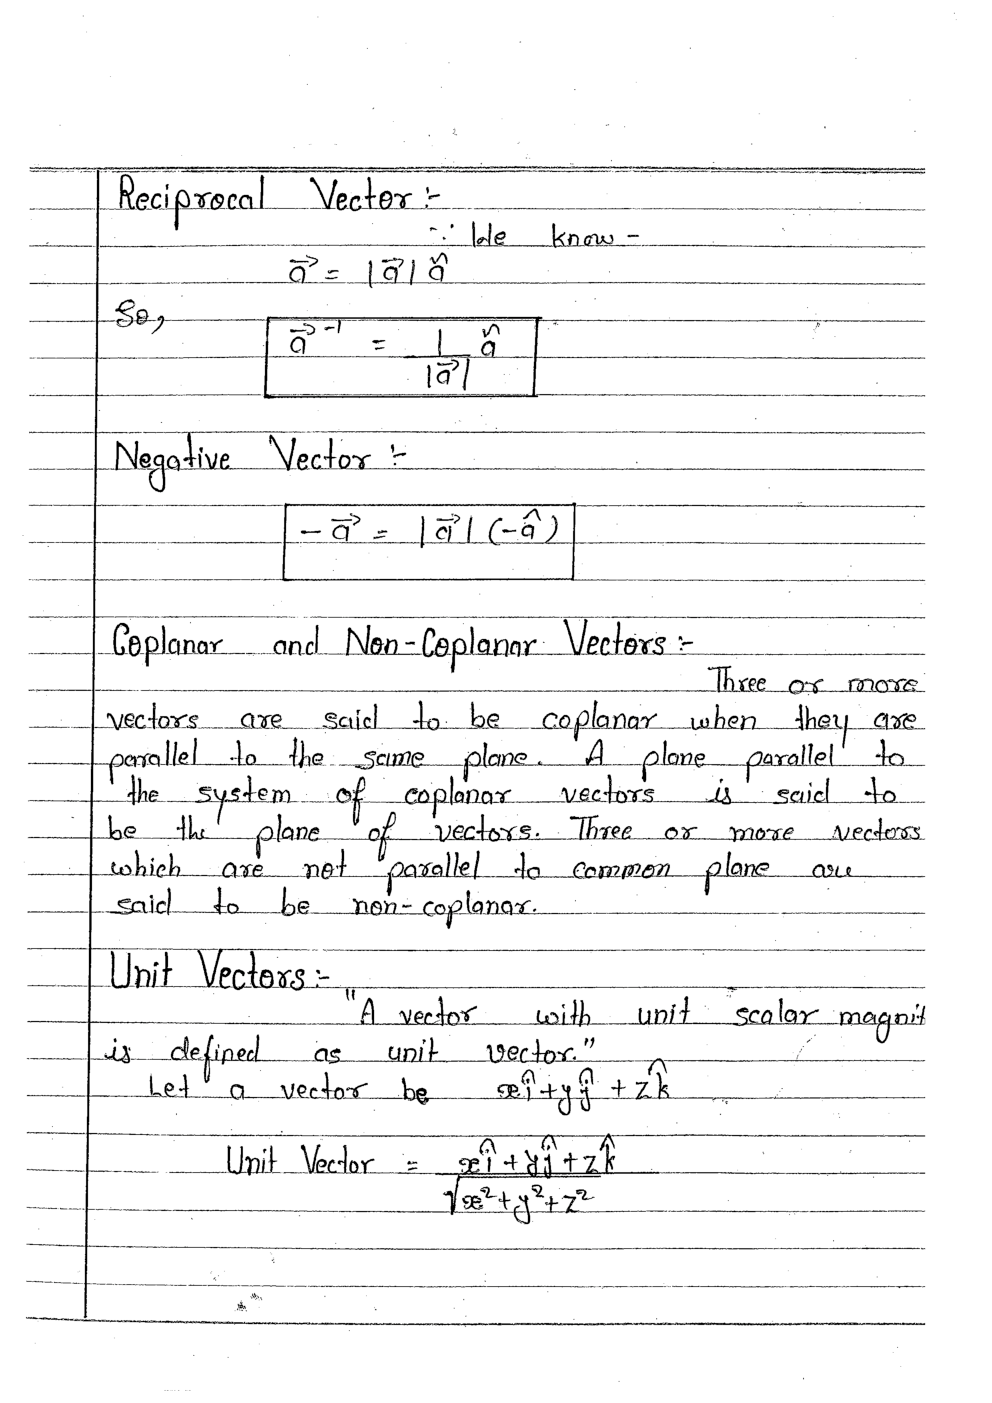 Reciprocal Vector :-
∵ We know -
a⃗ = |a⃗| â
So,
a⃗⁻¹ = 1/|a⃗| â
Negative Vector :-
- a⃗ = |a⃗| (-â)
Coplanar and Non-Coplanar Vectors :-
Three or more
vectors are said to be coplanar when they are
parallel to the same plane. A plane parallel to
the system of coplanar vectors is said to
be the plane of vectors. Three or more vectors
which are not parallel to common plane are
said to be non-coplanar.
Unit Vectors :-
"A vector with unit scalar magnit
is defined as unit vector."
Let a vector be xî + yĵ + zk̂
Unit Vector = xî + yĵ + zk̂ / √x² + y² + z²